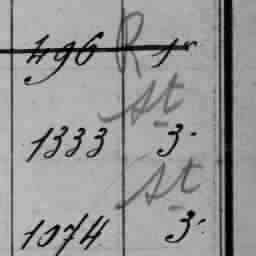 496 R 1r
st
1333 3.
st
1074 3.